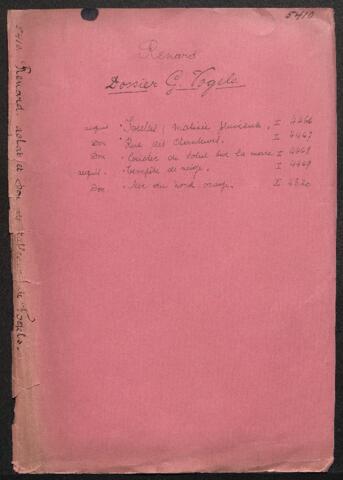 5410
Renard
Dossier G. Vogels
acquis - Ixelles, matinée pluvieuse. I 4466
Don - Rue des Chanteurs. I 4467
Don - Coucher de soleil sur la mare I 4468
acquis - tempête de neige. I 4469
Don - Mer du nord orage. I
5410 Renard, achat et don de tableaux de Vogels.